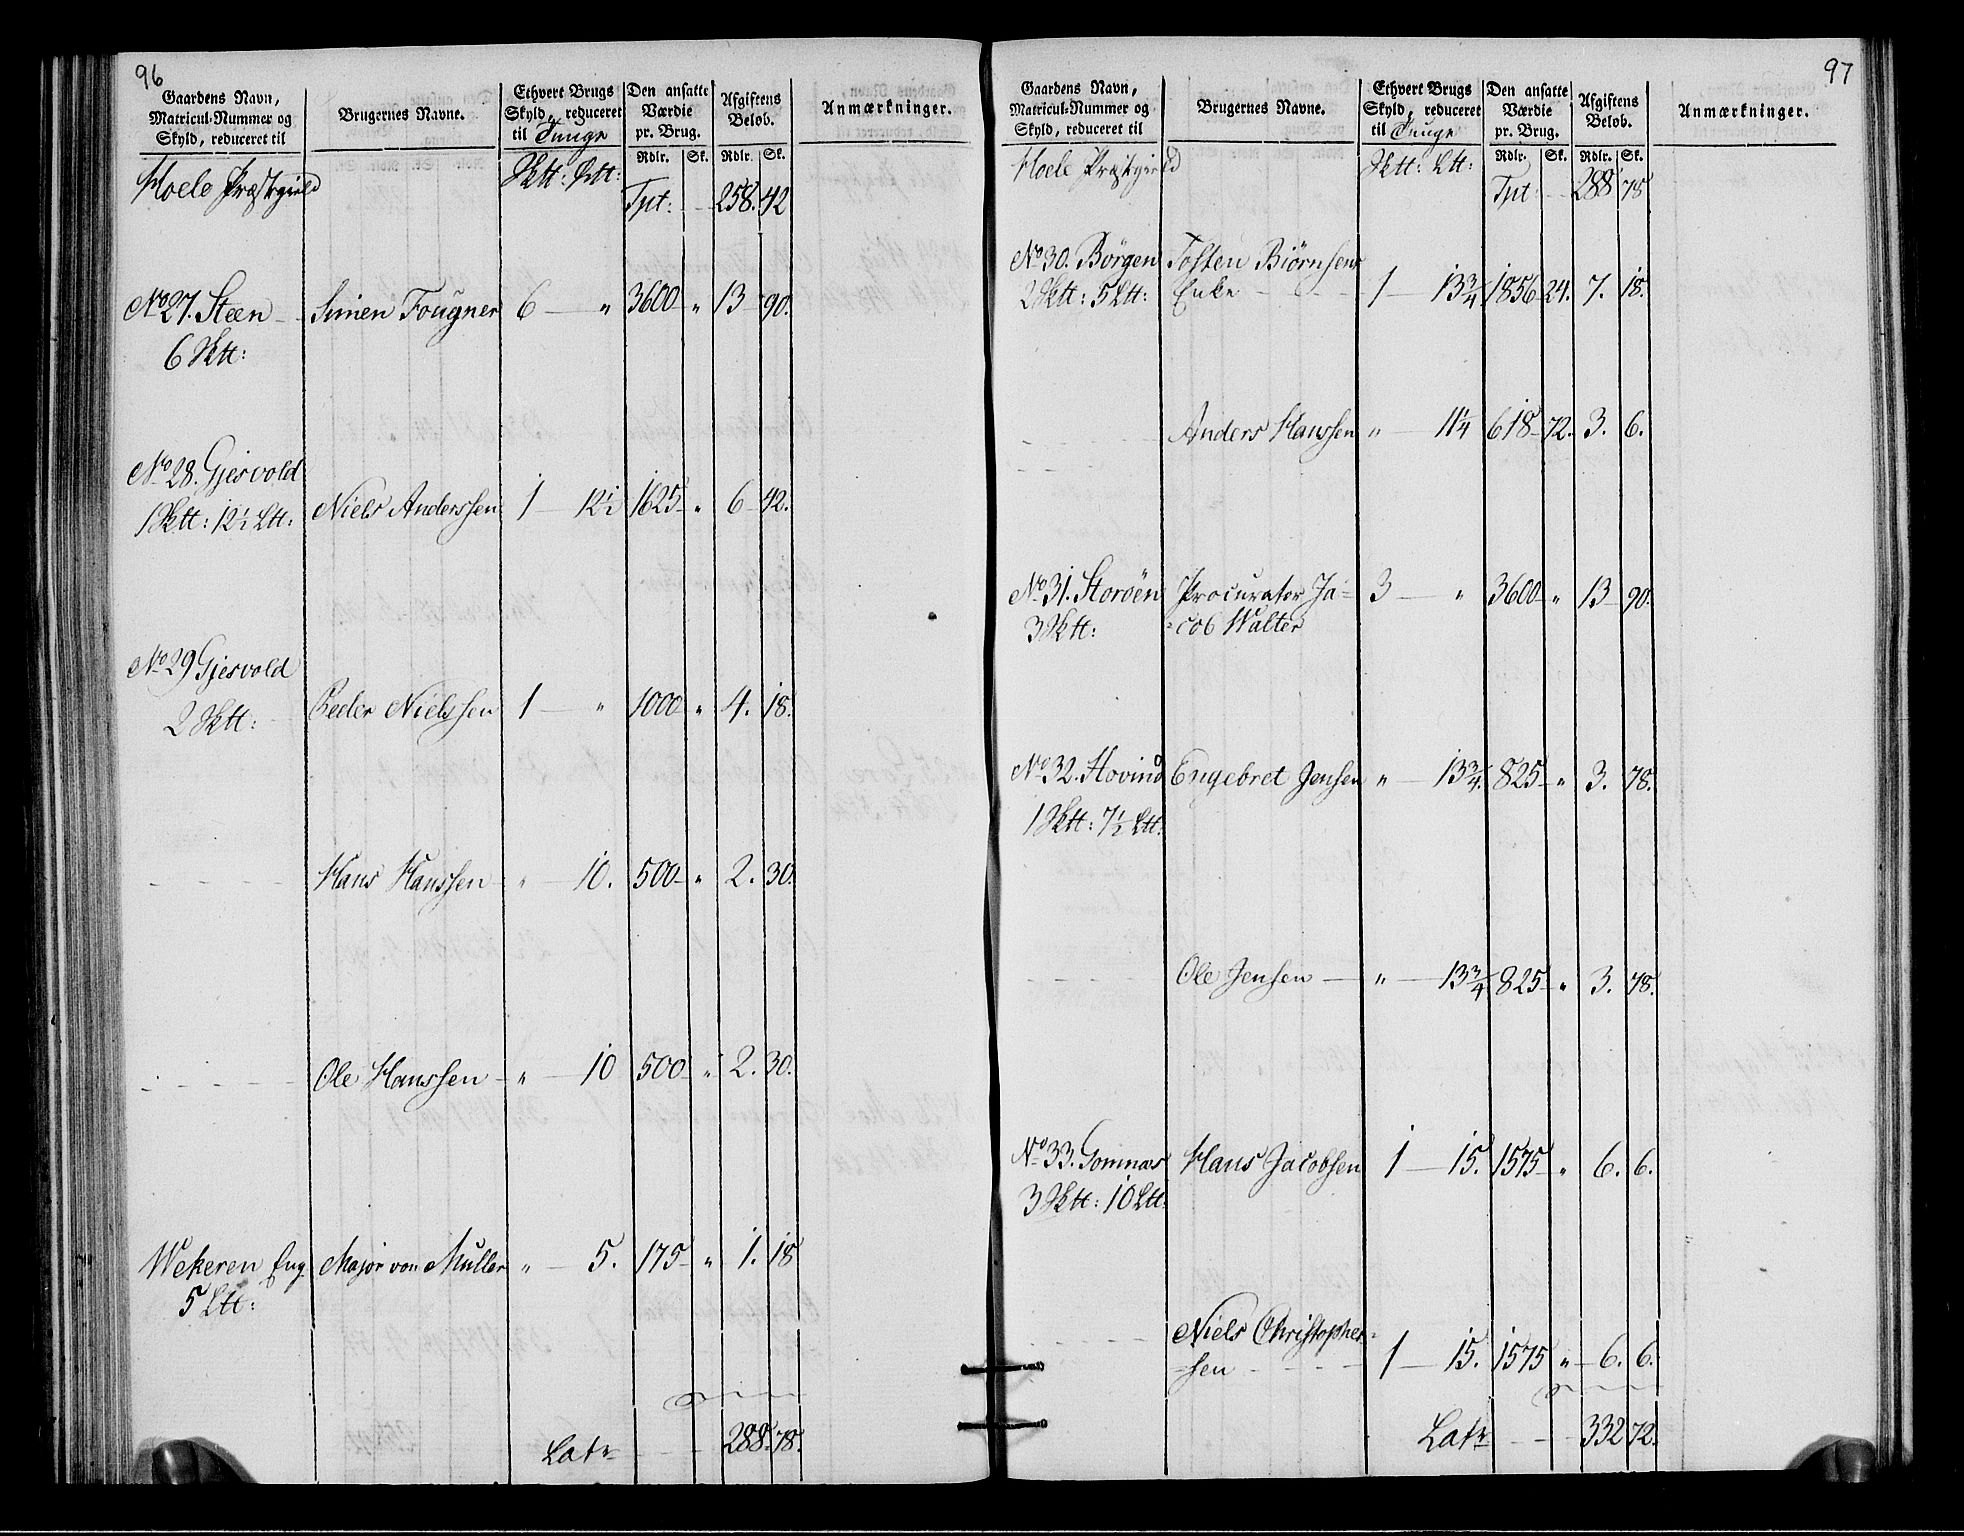 96
Gaardens Navn, Matricul-Nummer og Skyld, reduceret til | Brugernes Navne. | Ethvert Brugs Skyld, reduceret til Tunge | Den ansatte Værdie pr. Brug. | Afgiftens Beløb. | Anmærkninger.
Rdlr. Sk. Rdlr. Sk.
Hoele Præstegield Sktt: Ltt: Tpt: 258. 42
No 27. Steen Simen Fougner 6 — " 3600 " 13 90.
6 Sktt:
No 28. Gjesvold
1 Sktt: 12½ Ltt: Niels Anderssen 1 — 12½ 1625 " 6 42.
No 29 Gjesvold
2 Sktt: Peder Nielssen 1 — " 1000 " 4. 18.
Hans Hanssen " — 10. 500 " 2. 30.
Ole Hanssen " — 10 500 " 2. 30.
Wekeren Eng Major von Muller " — 5. 175 " 1. 18
5 Ltt:
Latr 288. 78.
97
Gaardens Navn, Matricul-Nummer og Skyld, reduceret til | Brugernes Navne. | Ethvert Brugs Skyld, reduceret til Tunge | Den ansatte Værdie pr. Brug. | Afgiftens Beløb. | Anmærkninger.
Rdlr. Sk. Rdlr. Sk.
Hoele Præstegield Sktt: Ltt: Tpt: 288 78
No 30. Börgen Tosten Biörnsens
2 Sktt: 5 Ltt: Enke 1 — 13¾ 1856 24. 7. 18.
Anders Hanssen " — 11¼ 618 72. 3. 6.
No 31. Storöen Procurator Ja= 3 — " 3600 " 13 90.
3 Sktt: =cob Walter
No 32. Hovind Engebret Jensen " — 13¾. 825 " 3. 78.
1 Sktt: 7½ Ltt.
Ole Jensen — " — 13¾ 825 " 3. 78.
No 33. Gomnæs Hans Jacobsen 1 — 15. 1575 " 6. 6.
3 Sktt: 10 Ltt:
Niels Christopher=
=sen 1 — 15. 1575 " 6. 6.
Latr 332 72.